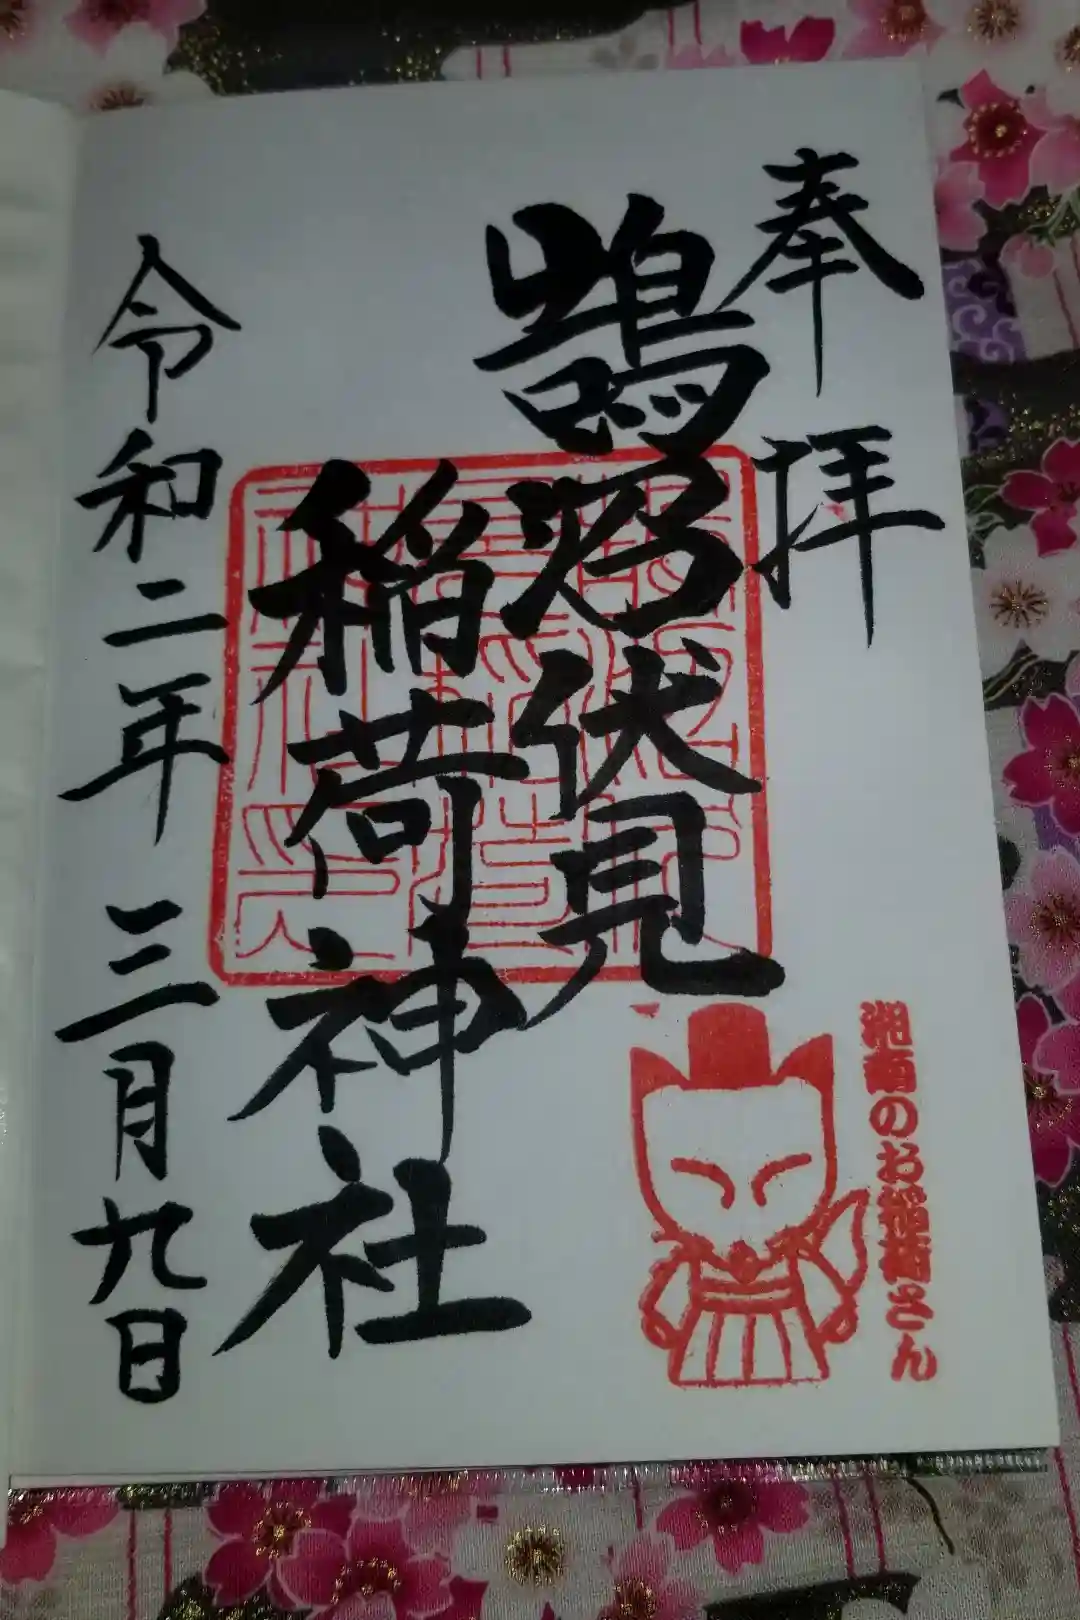 奉拝
鵠沼伏見
稲荷神社
令和二年 三月九日
湘南のお稲荷さん